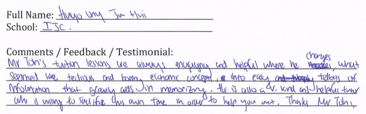 Full Name: Jun Hui
School: IJC.
Comments / Feedback / Testimonial: changes
Mr Toh's tuition lessons are always engaging and helpful where he what
seemed like tedious and boring economic concepts into easy tidbits of
information that greatly aids in memorizing. He is also a v. kind and helpful tutor
who is willing to sacrifice his own time in order to help you out. Thanks Mr Toh!